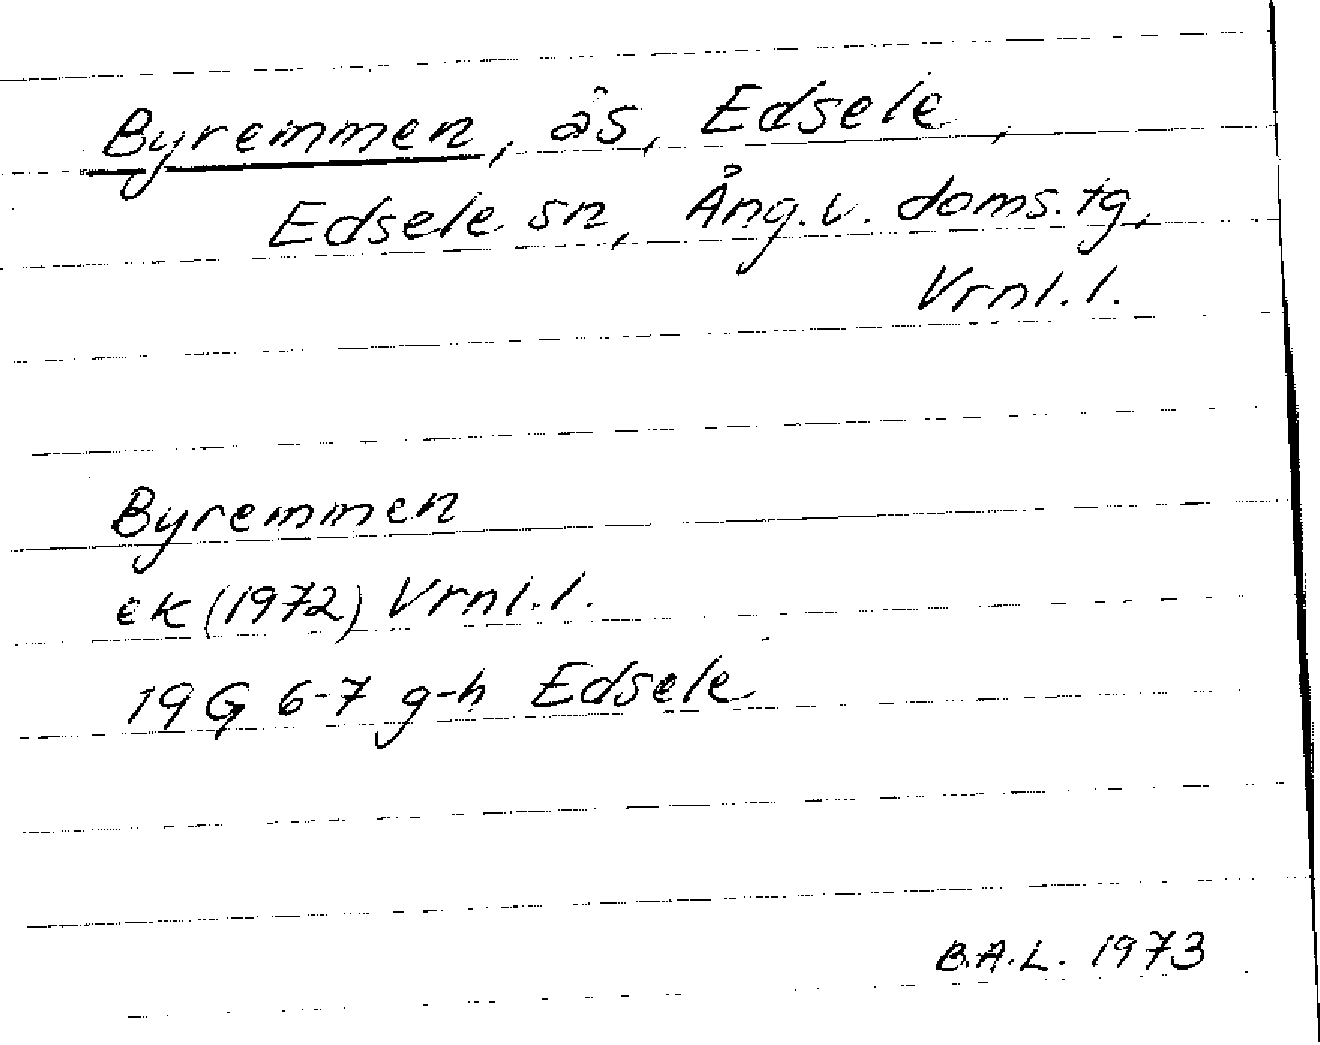 Byremmen, ås, Edsele,
Edsele sn, Ång. v. doms. tg,
Vrnl. l.
Byremmen
ek (1972) Vrnl. l.
19 G 6-7 g-h Edsele
B.A.L. 1973